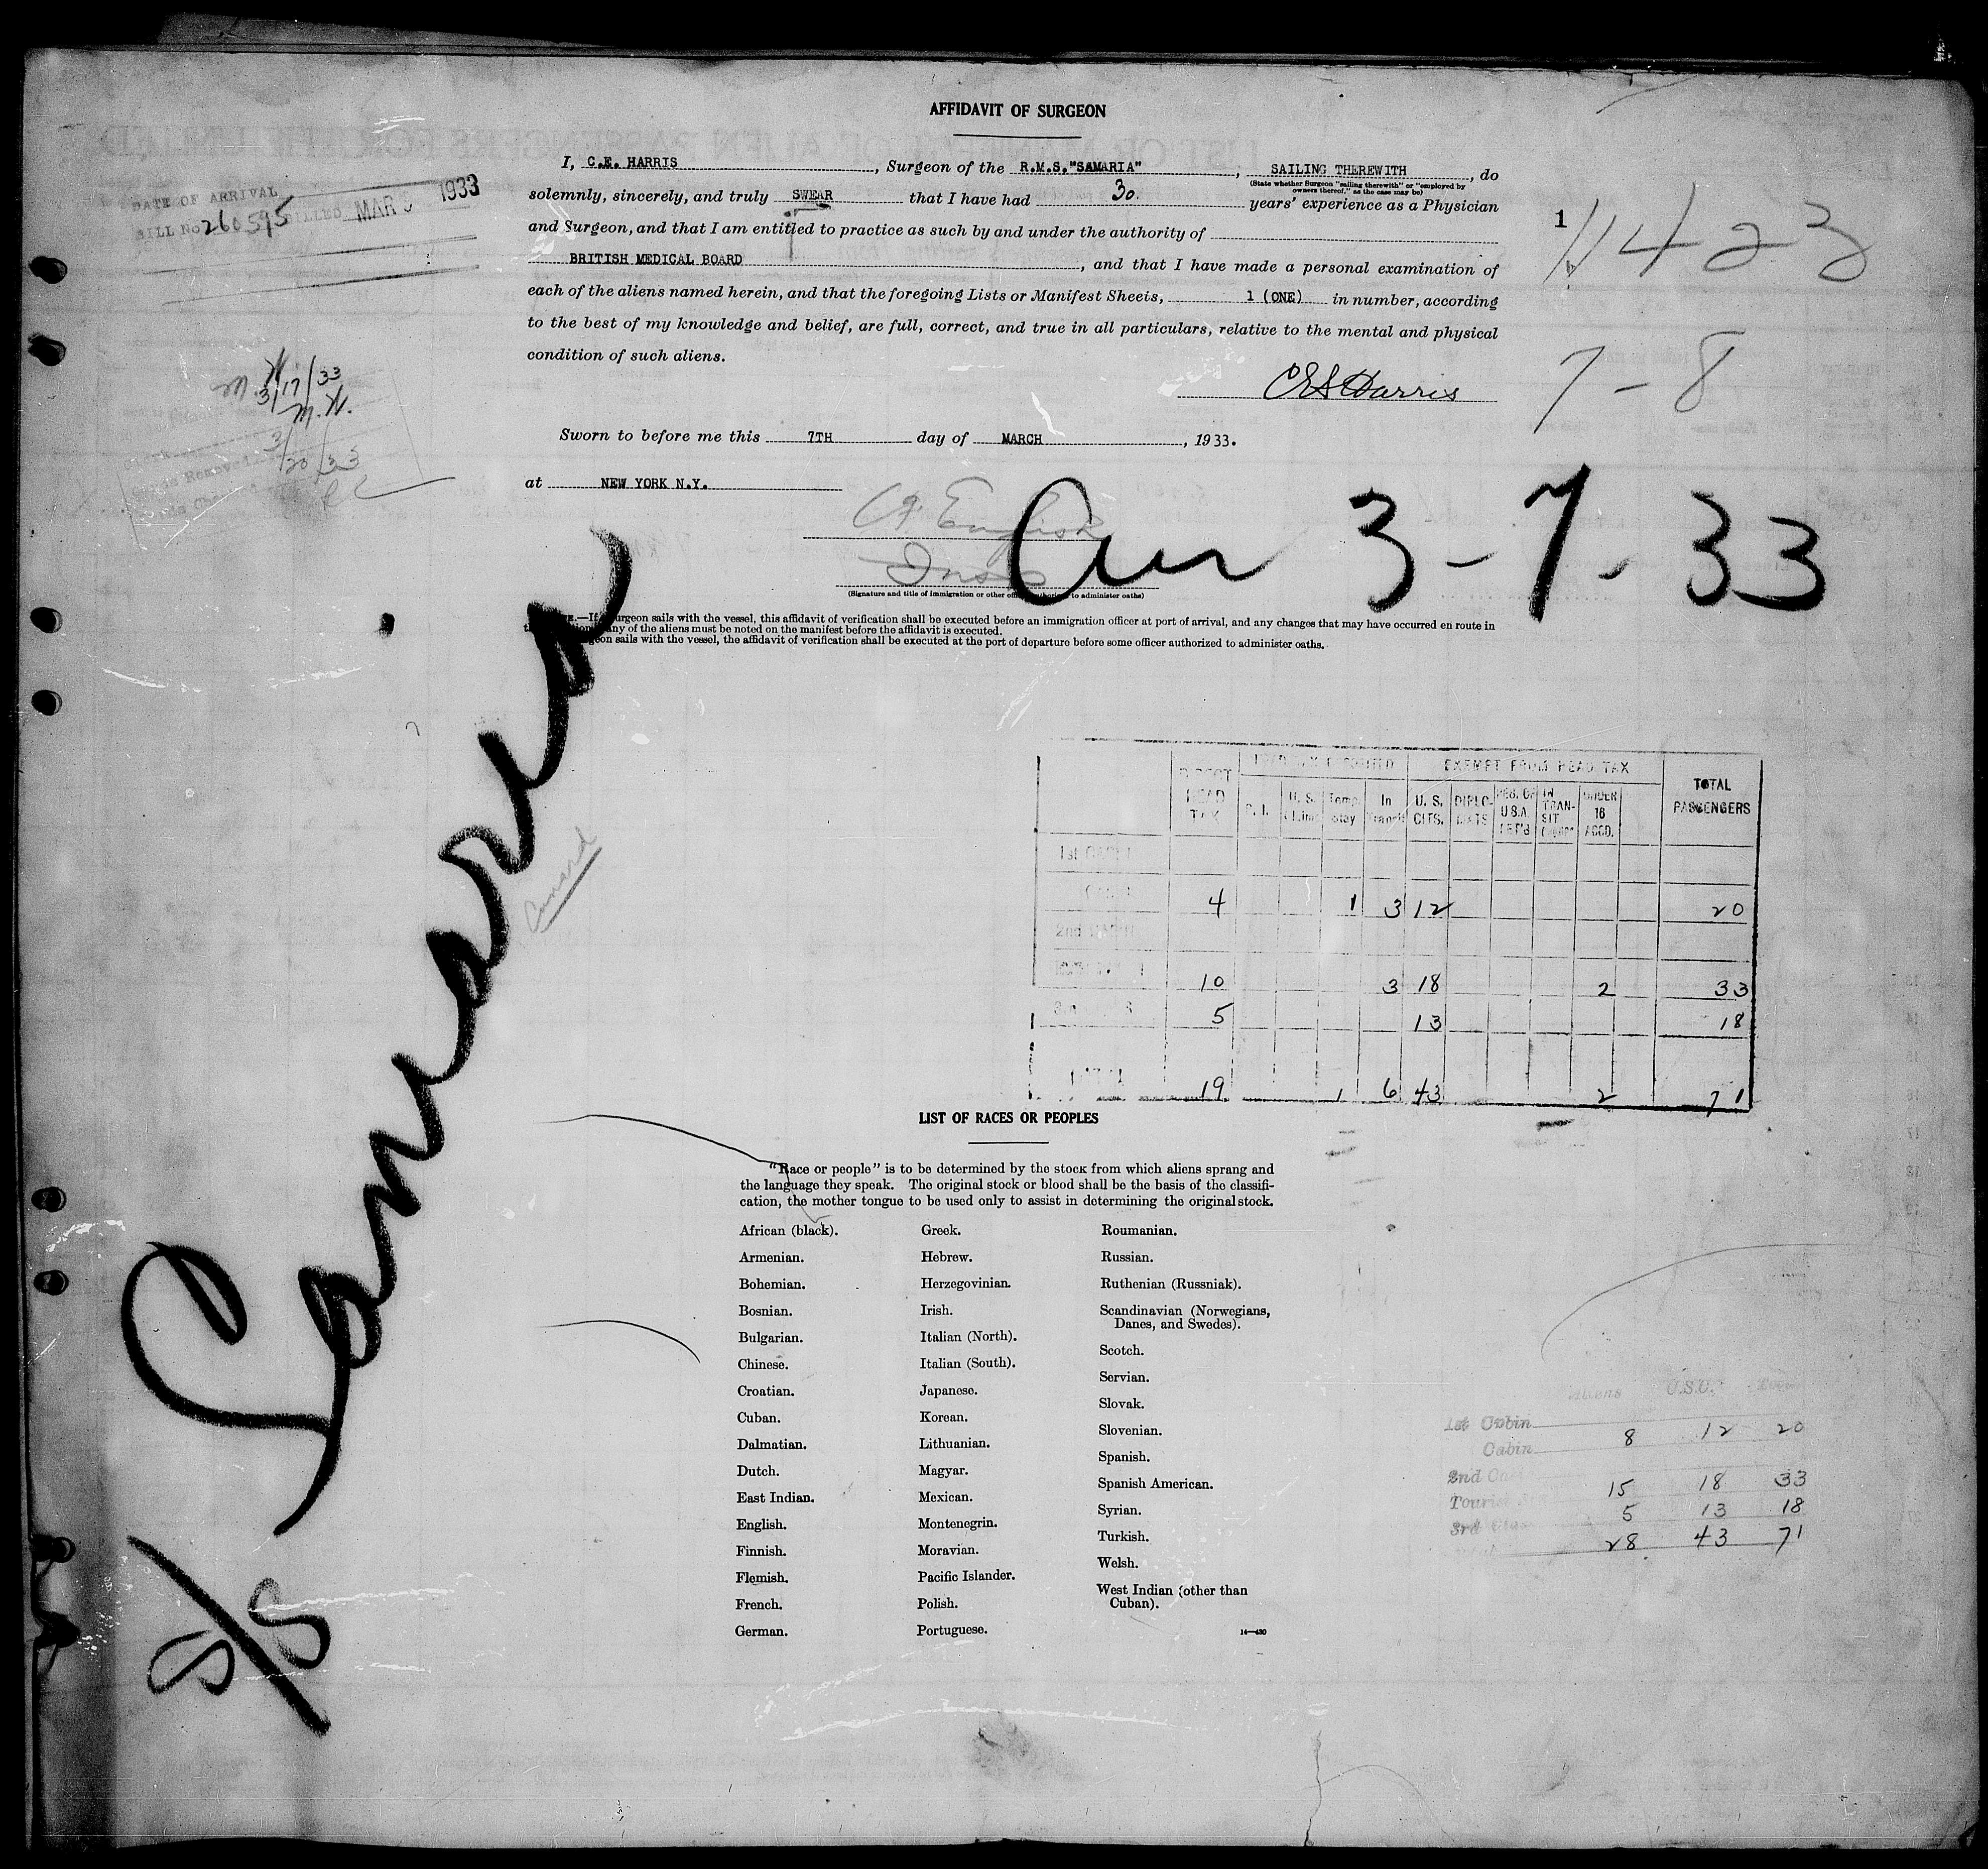 AFFIDAVIT OF SURGEON
I, C.E. HARRIS, Surgeon of the R.M.S."SAMARIA", SAILING THEREWITH, do
(State whether Surgeon "sailing therewith" or "employed by owners thereof," as the case may be)
solemnly, sincerely, and truly SWEAR that I have had 30. years' experience as a Physician
and Surgeon, and that I am entitled to practice as such by and under the authority of
BRITISH MEDICAL BOARD, and that I have made a personal examination of
each of the aliens named herein, and that the foregoing Lists or Manifest Sheets, 1 (ONE) in number, according
to the best of my knowledge and belief, are full, correct, and true in all particulars, relative to the mental and physical
condition of such aliens.
Harris
Sworn to before me this 7TH day of MARCH, 1933.
at NEW YORK N.Y.
English
Insp
(Signature and title of immigration or other to administer oaths)
DATE OF ARRIVAL
BILL No 260595 MAR 1933
1
11423
7-8
M.
3/17/33
M.N.
3/20/33
Arr 3-7-33
surgeon sails with the vessel, this affidavit of verification shall be executed before an immigration officer at port of arrival, and any changes that may have occurred en route in
any of the aliens must be noted on the manifest before the affidavit is executed.
sails with the vessel, the affidavit of verification shall be executed at the port of departure before some officer authorized to administer oaths.
S/S Samaria
Cunard
HEAD TAX EXEMPT FROM HEAD TAX TOTAL PASSENGERS
P.I. U.S. Temp. Stay In Transit U.S. CITS. DIPLO- MATS U.S.A. IN TRAN- SIT UNDER 16 ACCD.
4 1 3 12 20
10 3 18 2 33
5 13 18
19 1 6 43 2 71
LIST OF RACES OR PEOPLES
"Race or people" is to be determined by the stock from which aliens sprang and
the language they speak. The original stock or blood shall be the basis of the classifi-
cation, the mother tongue to be used only to assist in determining the original stock.
African (black).
Armenian.
Bohemian.
Bosnian.
Bulgarian.
Chinese.
Croatian.
Cuban.
Dalmatian.
Dutch.
East Indian.
English.
Finnish.
Flemish.
French.
German.
Greek.
Hebrew.
Herzegovinian.
Irish.
Italian (North).
Italian (South).
Japanese.
Korean.
Lithuanian.
Magyar.
Mexican.
Montenegrin.
Moravian.
Pacific Islander.
Polish.
Portuguese.
Roumanian.
Russian.
Ruthenian (Russniak).
Scandinavian (Norwegians,
Danes, and Swedes).
Scotch.
Servian.
Slovak.
Slovenian.
Spanish.
Spanish American.
Syrian.
Turkish.
Welsh.
West Indian (other than
Cuban).
14—430
Aliens U.S.C.
1st Cabin
Cabin 8 12 20
2nd
Tourist 15 18 33
3rd 5 13 18
28 43 71